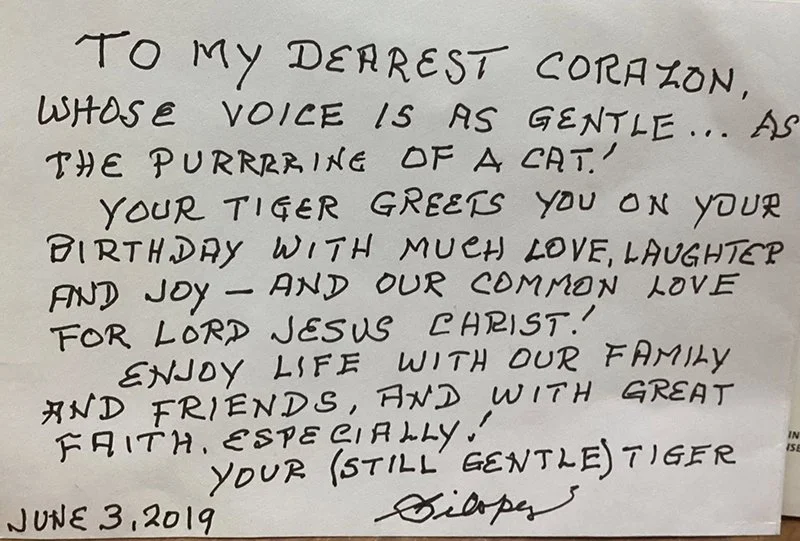 TO MY DEAREST CORAZON,
WHOSE VOICE IS AS GENTLE... AS
THE PURRRRING OF A CAT!
YOUR TIGER GREETS YOU ON YOUR
BIRTHDAY WITH MUCH LOVE, LAUGHTER
AND JOY — AND OUR COMMON LOVE
FOR LORD JESUS CHRIST!
ENJOY LIFE WITH OUR FAMILY
AND FRIENDS, AND WITH GREAT
FAITH. ESPECIALLY!
YOUR (STILL GENTLE) TIGER
JUNE 3, 2019